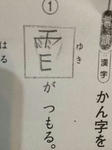 漢字
かん字を
①
雪
ゆき
が つもる。
はる